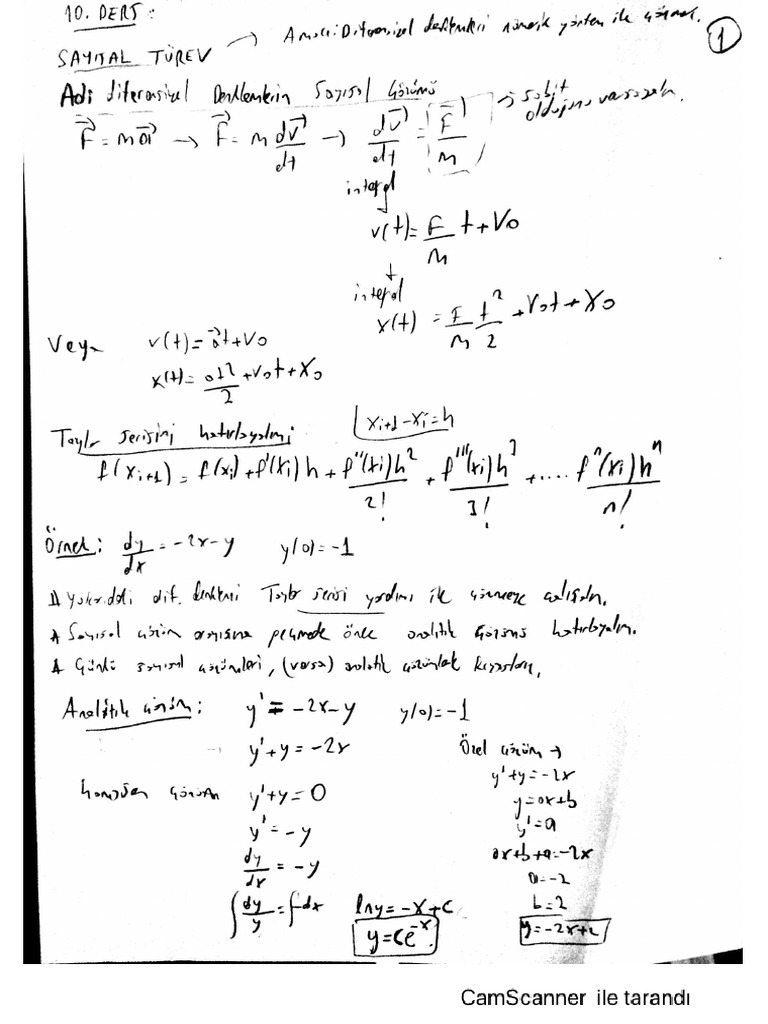 10. DERS:
SAYISAL TÜREV → Amaç: Diferansiyel denklemleri nümerik yöntem ile çözmek.
1
Adi diferansiyel Denklemlerin Sayısal Çözümü
F = ma → F = m dv/dt → dv/dt = F/m → sabit olduğunu varsayalım.
integral
v(t) = F/m t + V0
↓
integral
x(t) = F/m t²/2 + V0t + X0
Veya v(t) = at + V0
x(t) = at²/2 + V0t + X0
Taylor serisini hatırlayalım: xi+1 - xi = h
f(xi+1) = f(xi) + f'(xi)h + f''(xi)h²/2! + f'''(xi)h³/3! + .... fⁿ(xi)hⁿ/n!
Örnek: dy/dx = -2x-y y(0) = -1
Yukarıdaki dif. denklemi Taylor serisi yardımı ile çözmeye çalışalım.
Sayısal çözüm arayışına geçmeden önce analitik çözümü hatırlayalım.
Çünkü sayısal çözümleri, (varsa) analitik çözümle kıyaslarız.
Analitik çözüm: y' = -2x-y y(0) = -1
y'+y = -2x
Özel çözüm →
y'+y = -2x
y = ax+b
y' = a
ax+b+a = -2x
a = -2
b = 2
y = -2x+2
homojen çözüm y'+y = 0
y' = -y
dy/dx = -y
∫ dy/y = ∫-dx lny = -x+c
y = ce^-x
CamScanner ile tarandı